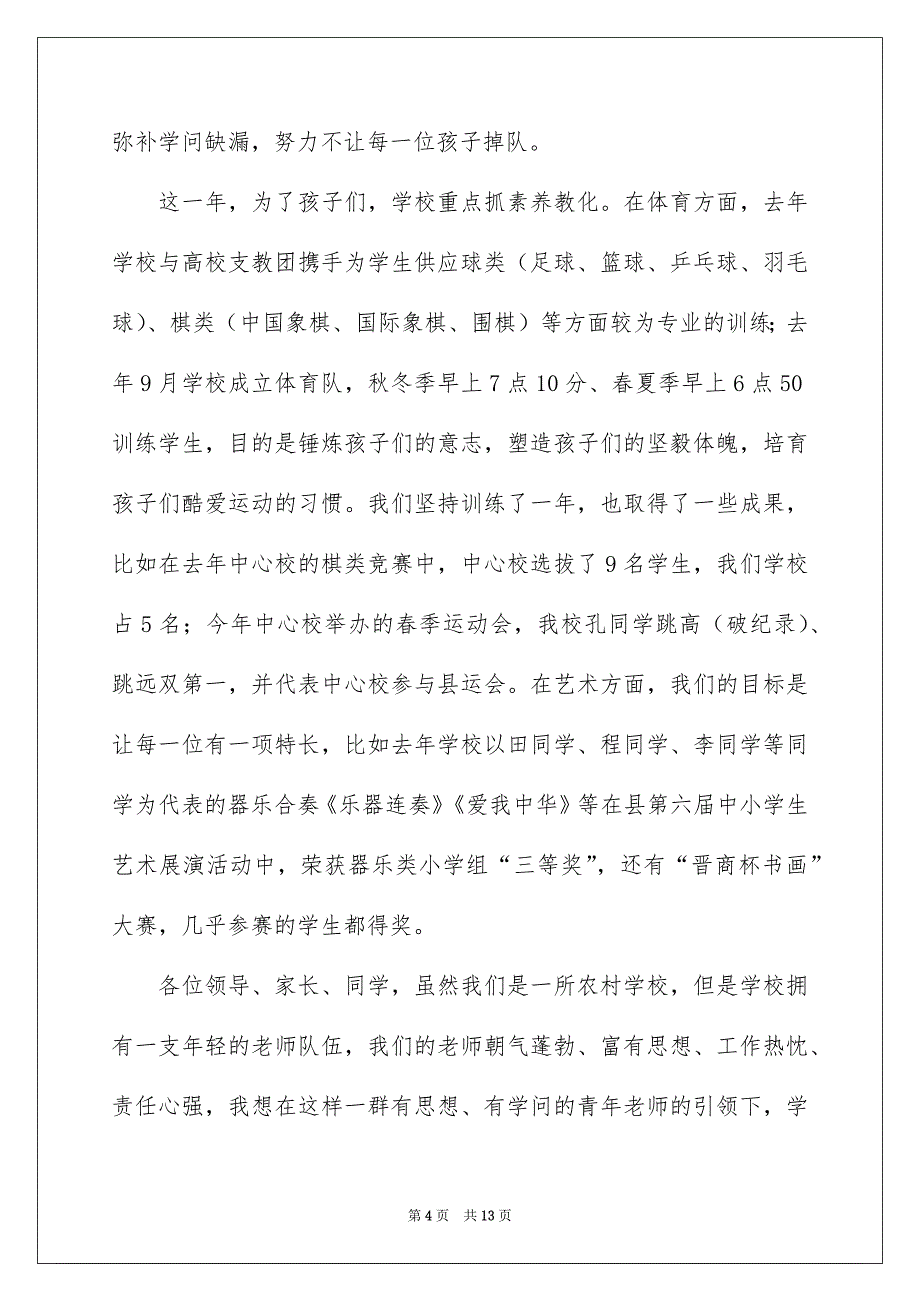 弥补学问缺漏，努力不让每一位孩子掉队。
这一年，为了孩子们，学校重点抓素养教化。在体育方面，去年
学校与高校支教团携手为学生供应球类（足球、篮球、乒乓球、羽毛
球）、棋类（中国象棋、国际象棋、围棋）等方面较为专业的训练；去
年 9 月学校成立体育队，秋冬季早上 7 点 10 分、春夏季早上 6 点 50
训练学生，目的是锤炼孩子们的意志，塑造孩子们的坚毅体魄，培育
孩子们酷爱运动的习惯。我们坚持训练了一年，也取得了一些成果，
比如在去年中心校的棋类竞赛中，中心校选拔了 9 名学生，我们学校
占 5 名；今年中心校举办的春季运动会，我校孔同学跳高（破纪录）、
跳远双第一，并代表中心校参与县运会。在艺术方面，我们的目标是
让每一位有一项特长，比如去年学校以田同学、程同学、李同学等同
学为代表的器乐合奏《乐器连奏》《爱我中华》等在县第六届中小学生
艺术展演活动中，荣获器乐类小学组“三等奖”，还有“晋商杯书画”
大赛，几乎参赛的学生都得奖。
各位领导、家长、同学，虽然我们是一所农村学校，但是学校拥
有一支年轻的老师队伍，我们的老师朝气蓬勃、富有思想、工作热忱、
责任心强，我想在这样一群有思想、有学问的青年老师的引领下，学
第 4 页 共 13 页